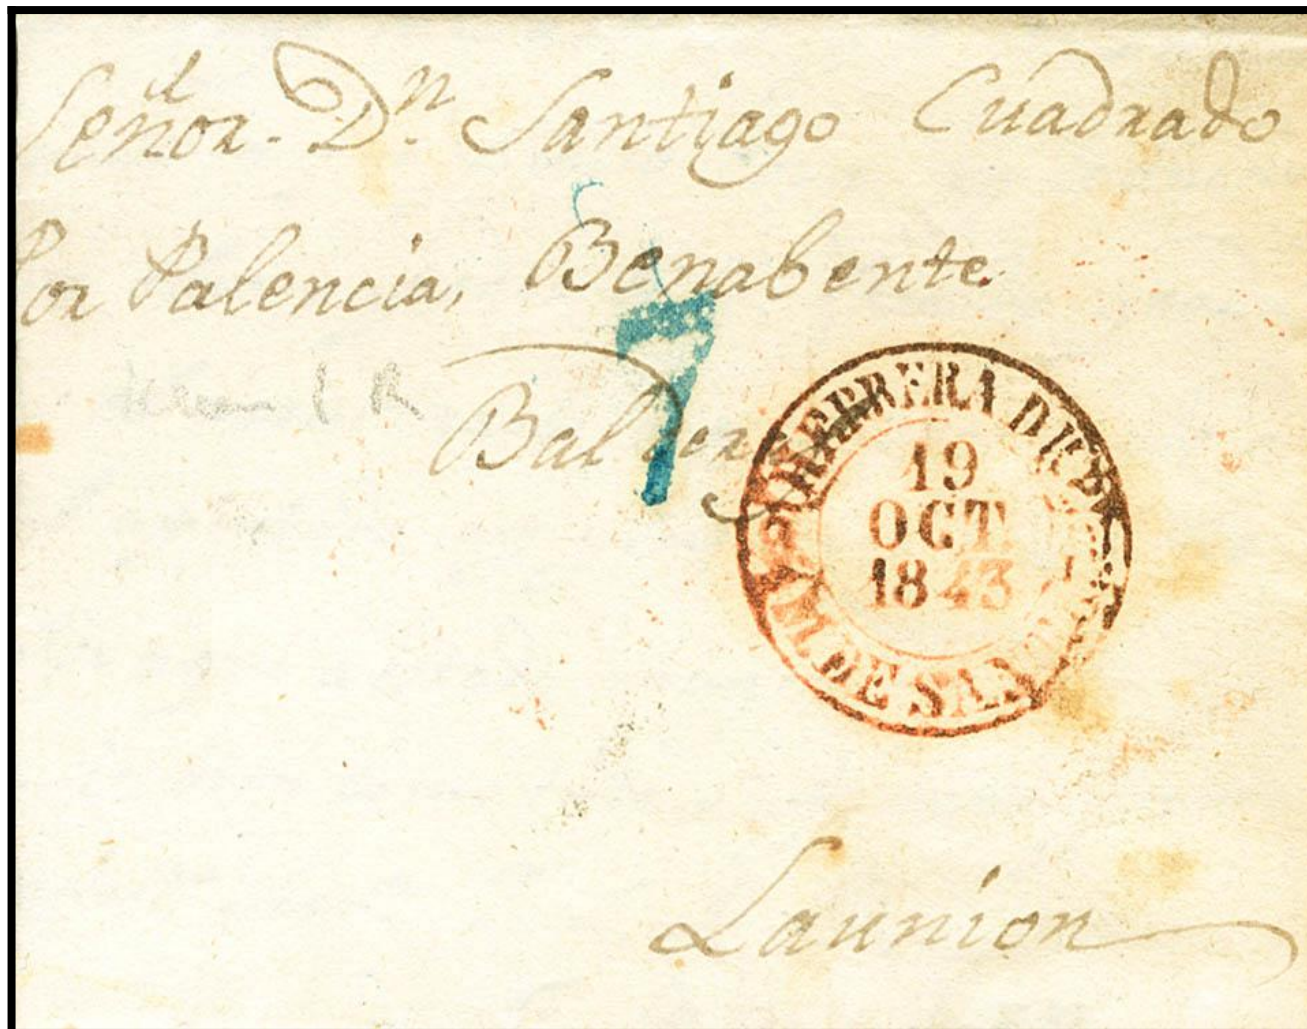 Señor. Dn. Santiago Cuadrado
Por Palencia, Benabente
7
HERRERA DE
19
OCT
1843
DE SAN
Launion